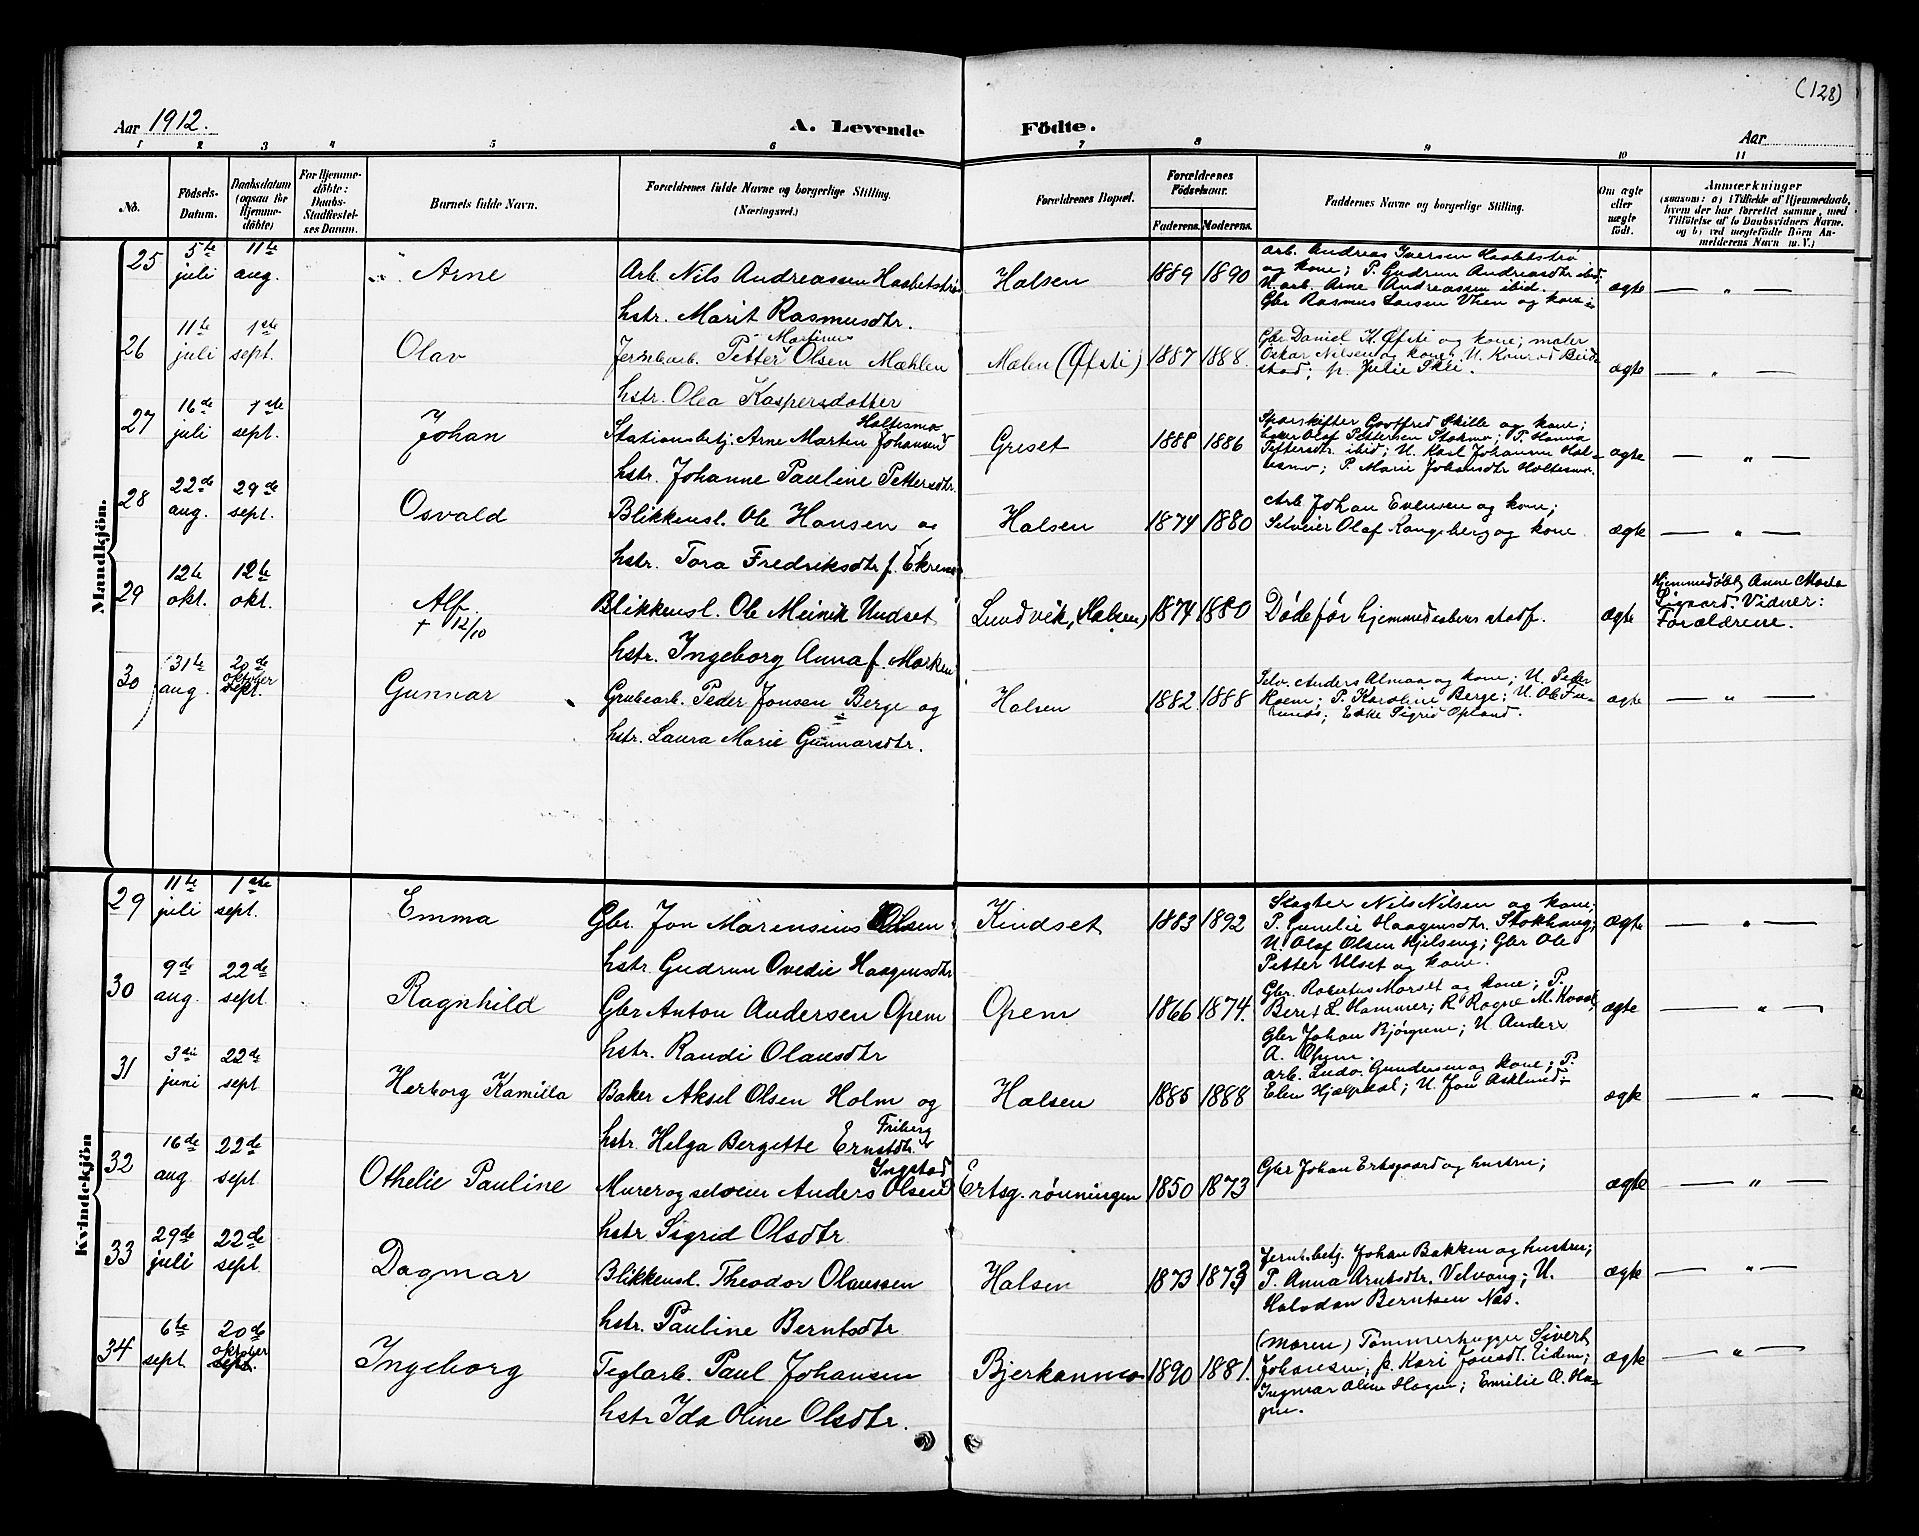 (128)
Aar 1912.
A. Levende Födte.
Aar
1 2 3 4 5 6 7 8 9 10 11
No.
Födsels-Datum.
Daabsdatum (ogsaa for Hjemme-döbte)
For Hjemme-döbte: Daabs-Stadfæstel-ses Datum.
Barnets fulde Navn.
Forældrenes fulde Navne og borgerlige Stilling. (Næringsvei.)
Forældrenes Bopæl.
Forældrenes Födselsaar.
Faderens. Moderens.
Faddernes Navne og borgerlige Stilling.
Om ægte eller uægte födt.
Anmærkninger (saasom: a) i Tilfælde af Hjemmedaab, hvem der har forrettet samme, med Tilföielse af to Daabsvidners Navne, og b) ved uegtefödte Börn Anmelderens Navn m. V.)
Mandkjön.
25 5te juli 11te aug. Arne Arb. Nils Andreassen Haabetstrø Halsen 1889 1890 Arb. Andreas Iversen Haabetstrø
og kone; P. Gudrun Andreasdtr ibid; ægte — „ —
U. arb. Arne Andreassen ibid.
hstr. Marit Rasmusdtr. Gbr Rasmus Larsen Vhen og kone
26 11te juli 1ste sept. Olav Jernbarb. Petter Martinus Olsen Mæhlen Mælen (Øfsti) 1887 1888. Gbr Daniel K. Øfsti og kone; maler
Oskar Nilsen og kone; U. Konrad Beid-
stad; p. Julie Skei. ægte — „ —
hstr. Olea Kaspersdatter
27 16de juli 1ste sept. Johan Stationsbetj. Arne Martin Johansen Holtesmo Græset 1888 1886 Sporskifter Gotfred Skille og kone;
Olaf Pettersen Stokmo; P. Hanna
Pettersdtr. ibid; U. Karl Johansen Hol-
tesmo; P. Marie Johansdtr Holtesmo. ægte — „ —
hstr. Johanne Pauline Pettersdtr.
28 22de aug. 29de sept. Osvald Blikkensl. Ole Hansen og Halsen 1874 1880 Arb Johan Evensen og kone;
Selveier Olaf Kongsberg og kone ægte — „ —
hstr. Tora Fredriksdtr f. Ekren
29 12te okt. 12te okt. Alf † 12/10 Blikkensl. Ole Meinik Undset Lundvik, (Halsen) 1874 1880 Døde før hjemmedaabens stadf. ægte Hjemmedøbt Anne Marta
Vidner:
Forældrene.
hstr. Ingeborg Anna f. Marken
30 31te aug. 20de oktober sept. Gunnar Grubearb. Peder Jonsen Berge og Halsen 1882 1888 Selv. Anders Almaa og kone; U. Peder
P. Karoline Berge; U. Ole
Enke Sigrid Opland. ægte — „ —
hstr. Laura Marie Gunnarsdtr.
Kvindekjön
29 11te juli 1ste sept. Emma Gbr. Jon Marensius Olsen Kindset 1883 1892 Slagter Nils Nilsen og kone;
P. Gunelie Haagensdtr. Stokhaug;
U. Olaf Olsen Hjelseng; Gbr Ole
Petter Ulset og kone. ægte — „ —
hstr Gudrun Ovedie Haagensdtr
30 9de aug. 22de sept Ragnhild Gbr Anton Andersen Opem Opem 1866 1874. Gbr. Robertus Morset og kone; P.
Beret L. Hammer; P. Ragne M. Kvaal;
Gbr Johan Bjørgum; U. Anders
A. Opem. ægte — „ —
hstr. Randi Olausdtr
31 3die juni 22de sept Herborg Kamilla Baker Aksel Olsen Holm og Halsen 1885 1888 Arb. Ludv. Gundersen og kone; P.
Elen Hjælpkal; U. Jon Asklund; ægte — „ —
hstr. Helga Bergitte Ernstdtr. Friberg
32 16de aug 22de sept Othelie Pauline Murer og selveier Anders Olsen Ingstad Ertsg. rönningen 1850 1873 Gbr Johan Ertsgaard og hustru; ægte — „ —
hstr. Sigrid Olsdtr
33 29de juli 22de sept. Dagmar Blikkensl. Theodor Olaussen Halsen 1873 1873 Jernb.betj. Johan Bakken og hustru;
P. Anna Arntsdtr. Velvang; U.
Halvdan Berntsen Næs. ægte — „ —
hstr. Pauline Berntsdtr
34 6te sept 20de oktober sept. Ingeborg Teglarb. Paul Johansen Bjerkanmo 1890 1881. (moren) Tømmerhugger Sivert
Johansen; p. Kari Jonsdt. Eidem;
Ingmar Aline Hagen; Emilie A. Ha-
gen. ægte — „ —
hstr Ida Oline Olsdtr.